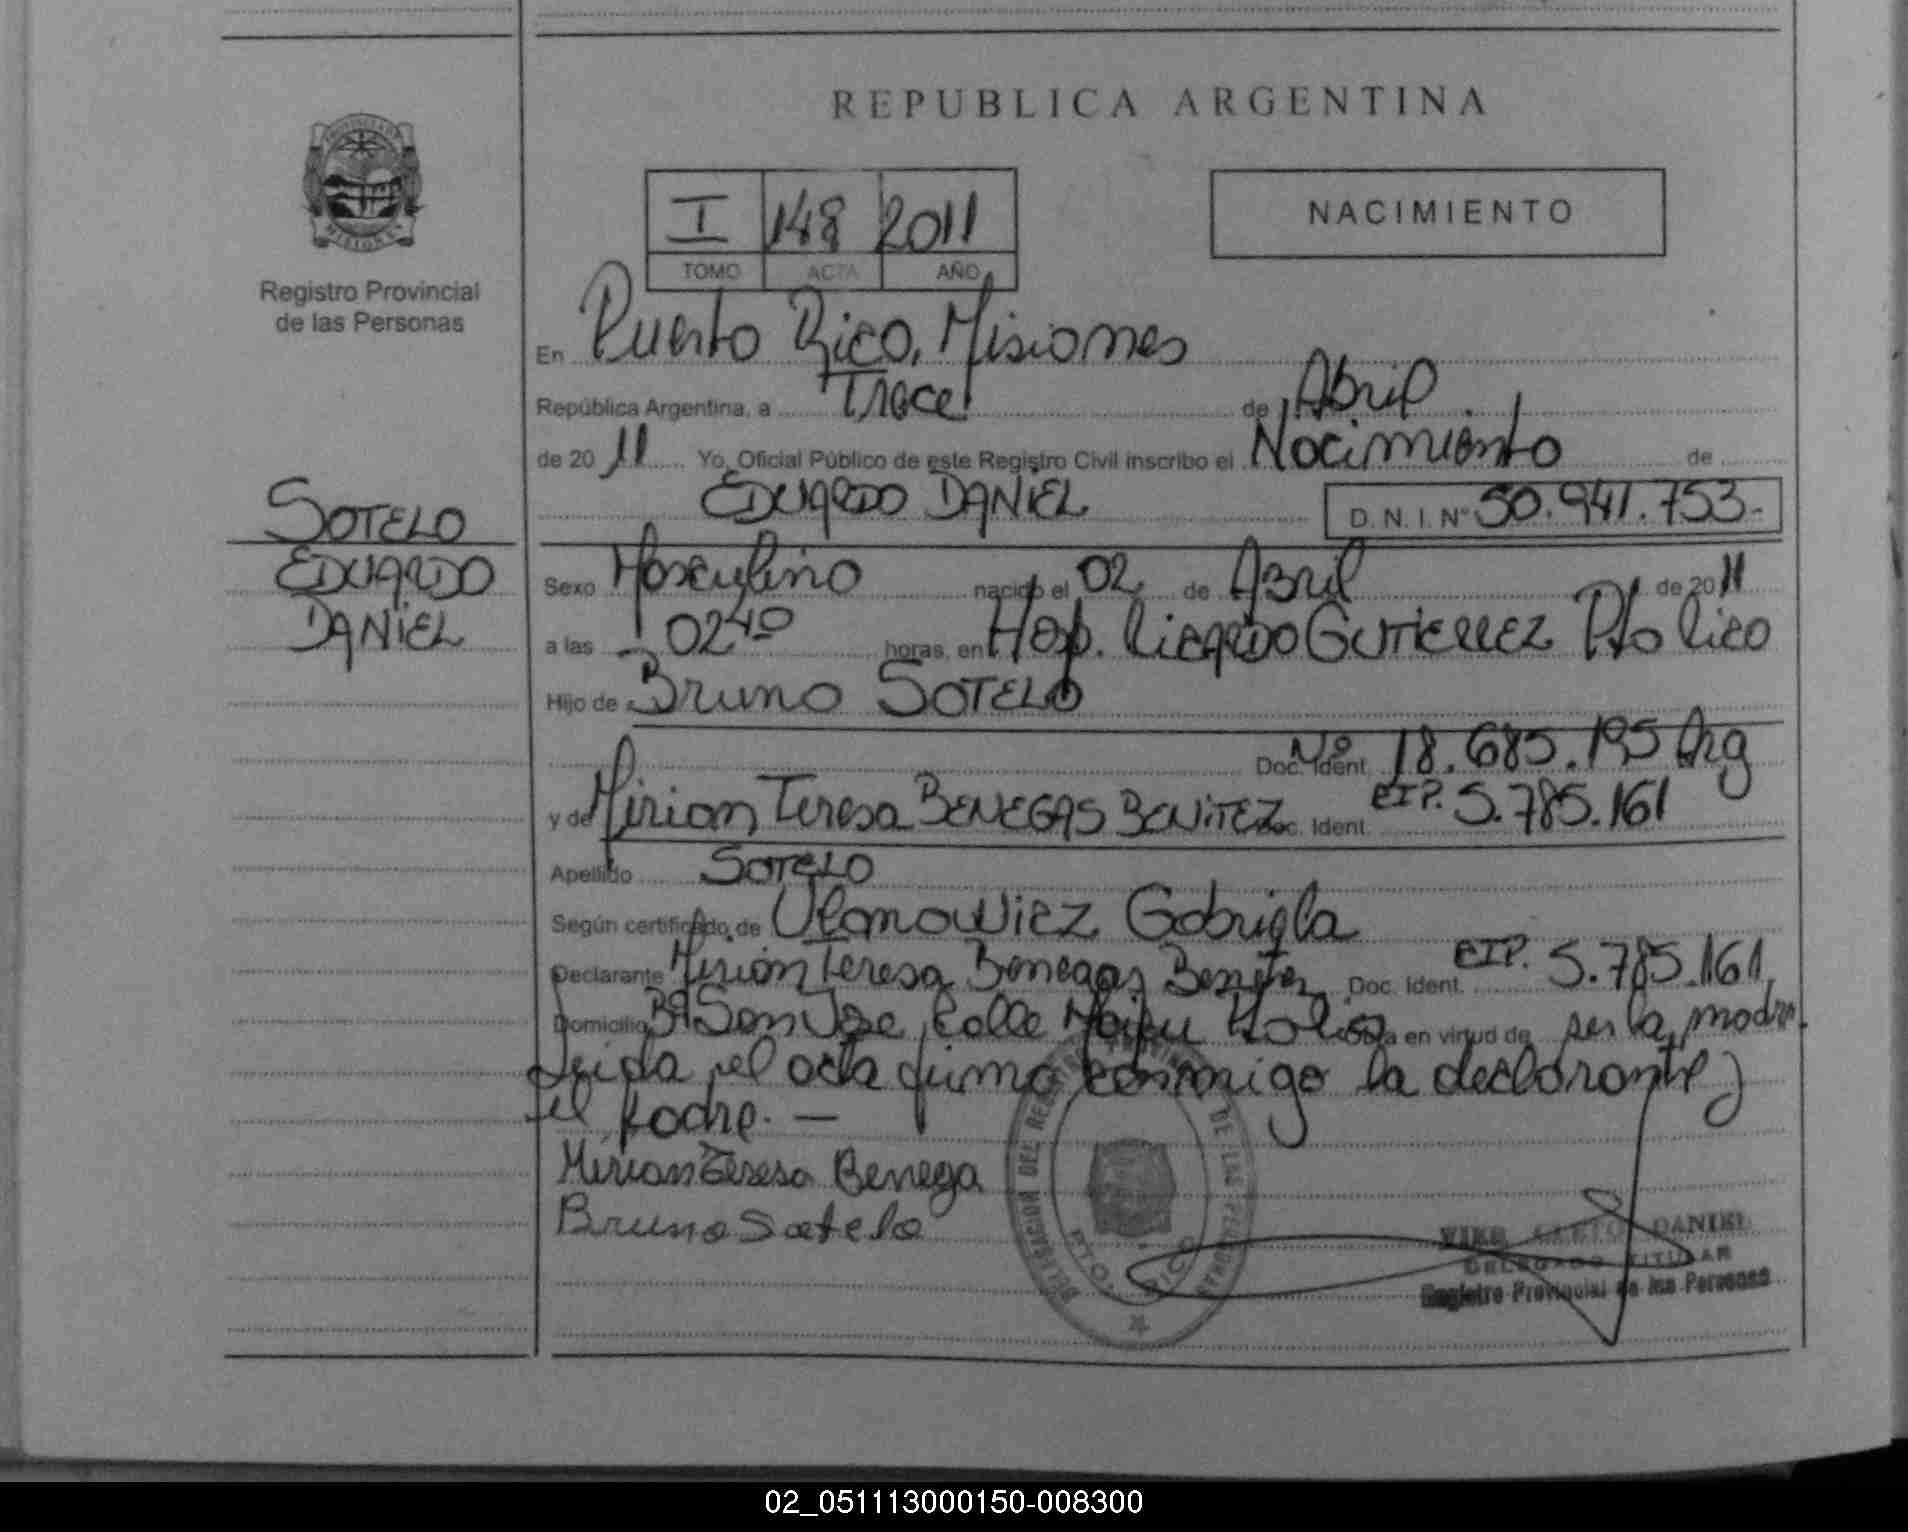 REPUBLICA ARGENTINA
PROVINCIA DE
MISIONES
Registro Provincial
de las Personas
I 148 2011
TOMO ACTA AÑO
NACIMIENTO
En Puerto Rico, Misiones
República Argentina, a Trece de Abril
de 2011 Yo, Oficial Público de este Registro Civil inscribo el Nacimiento de
EDUARDO DANIEL D.N.I. Nº 50.941.753.-
SOTELO
EDUARDO
DANIEL
Sexo Masculino nacido el 02 de Abril de 2011
a las 02 40 horas, en Hosp. RICARDO GUTIERREZ Pto Rico
Hijo de Bruno SOTELO
Doc. Ident. Nº 18.685.195 Arg
y de Mirian Teresa BENEGAS BENITEZ Doc. Ident. CIP. 5.785.161
Apellido SOTELO
Según certificado de Ulanowicz Gabriela
Declarante Mirian Teresa Benegas Benitez Doc. Ident. CIP. 5.785.161
Domicilio Bº San Jose, Calle Maipu en virtud de ser la madre.
Leida el acta firma conmigo la declarante y
el padre. —
Mirian Teresa Benega
Bruno Sotelo
DELEGACION DEL REGISTRO PROVINCIAL DE LAS PERSONAS
PTO. RICO
DANIEL
DELEGADO TITULAR
Registro Provincial de las Personas
02_051113000150-008300